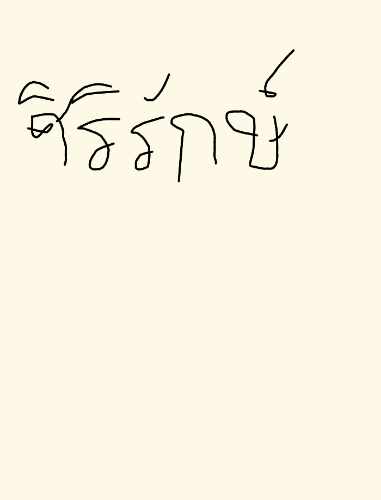 ศิริรักษ์